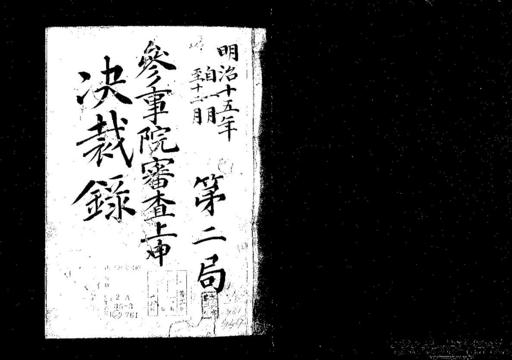 明治十五年
自一月
至十二月
第二局
參事院審査上申
決裁錄
2A
35-3